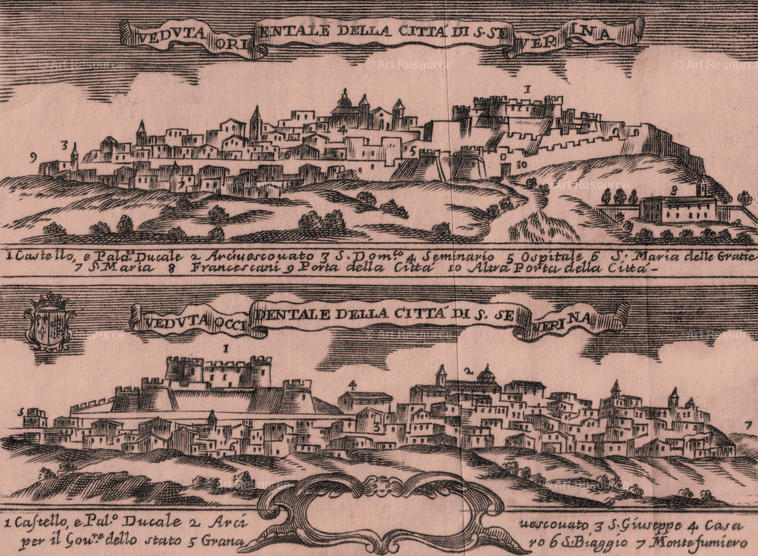 VEDUTA ORIENTALE DELLA CITTÀ DI S. SEVERINA
© Art Resource © Art Resource © Art Resource
1
3
4
9
5
10
8
© Art Resource © Art Resource © Art Resource
1 Castello, e Pal.º Ducale 2 Arcivescovato 3 S. Dom.co 4 Seminario 5 Ospitale 6 S. Maria delle Gratie
7 S. Maria 8 Francescani 9 Porta della Città 10 Altra Porta della Città
VEDUTA OCCIDENTALE DELLA CITTÀ DI S. SEVERINA
© Art Resource © Art Resource © Art Resource
1
2
4
5
3
7
© Art Resource © Art Resource © Art Resource
1 Castello, e Pal.º Ducale 2 Arcivescovato 3 S. Giuseppe 4 Casa
per il Gou.re dello stato 5 Granaro 6 S. Biaggio 7 Montefumiero